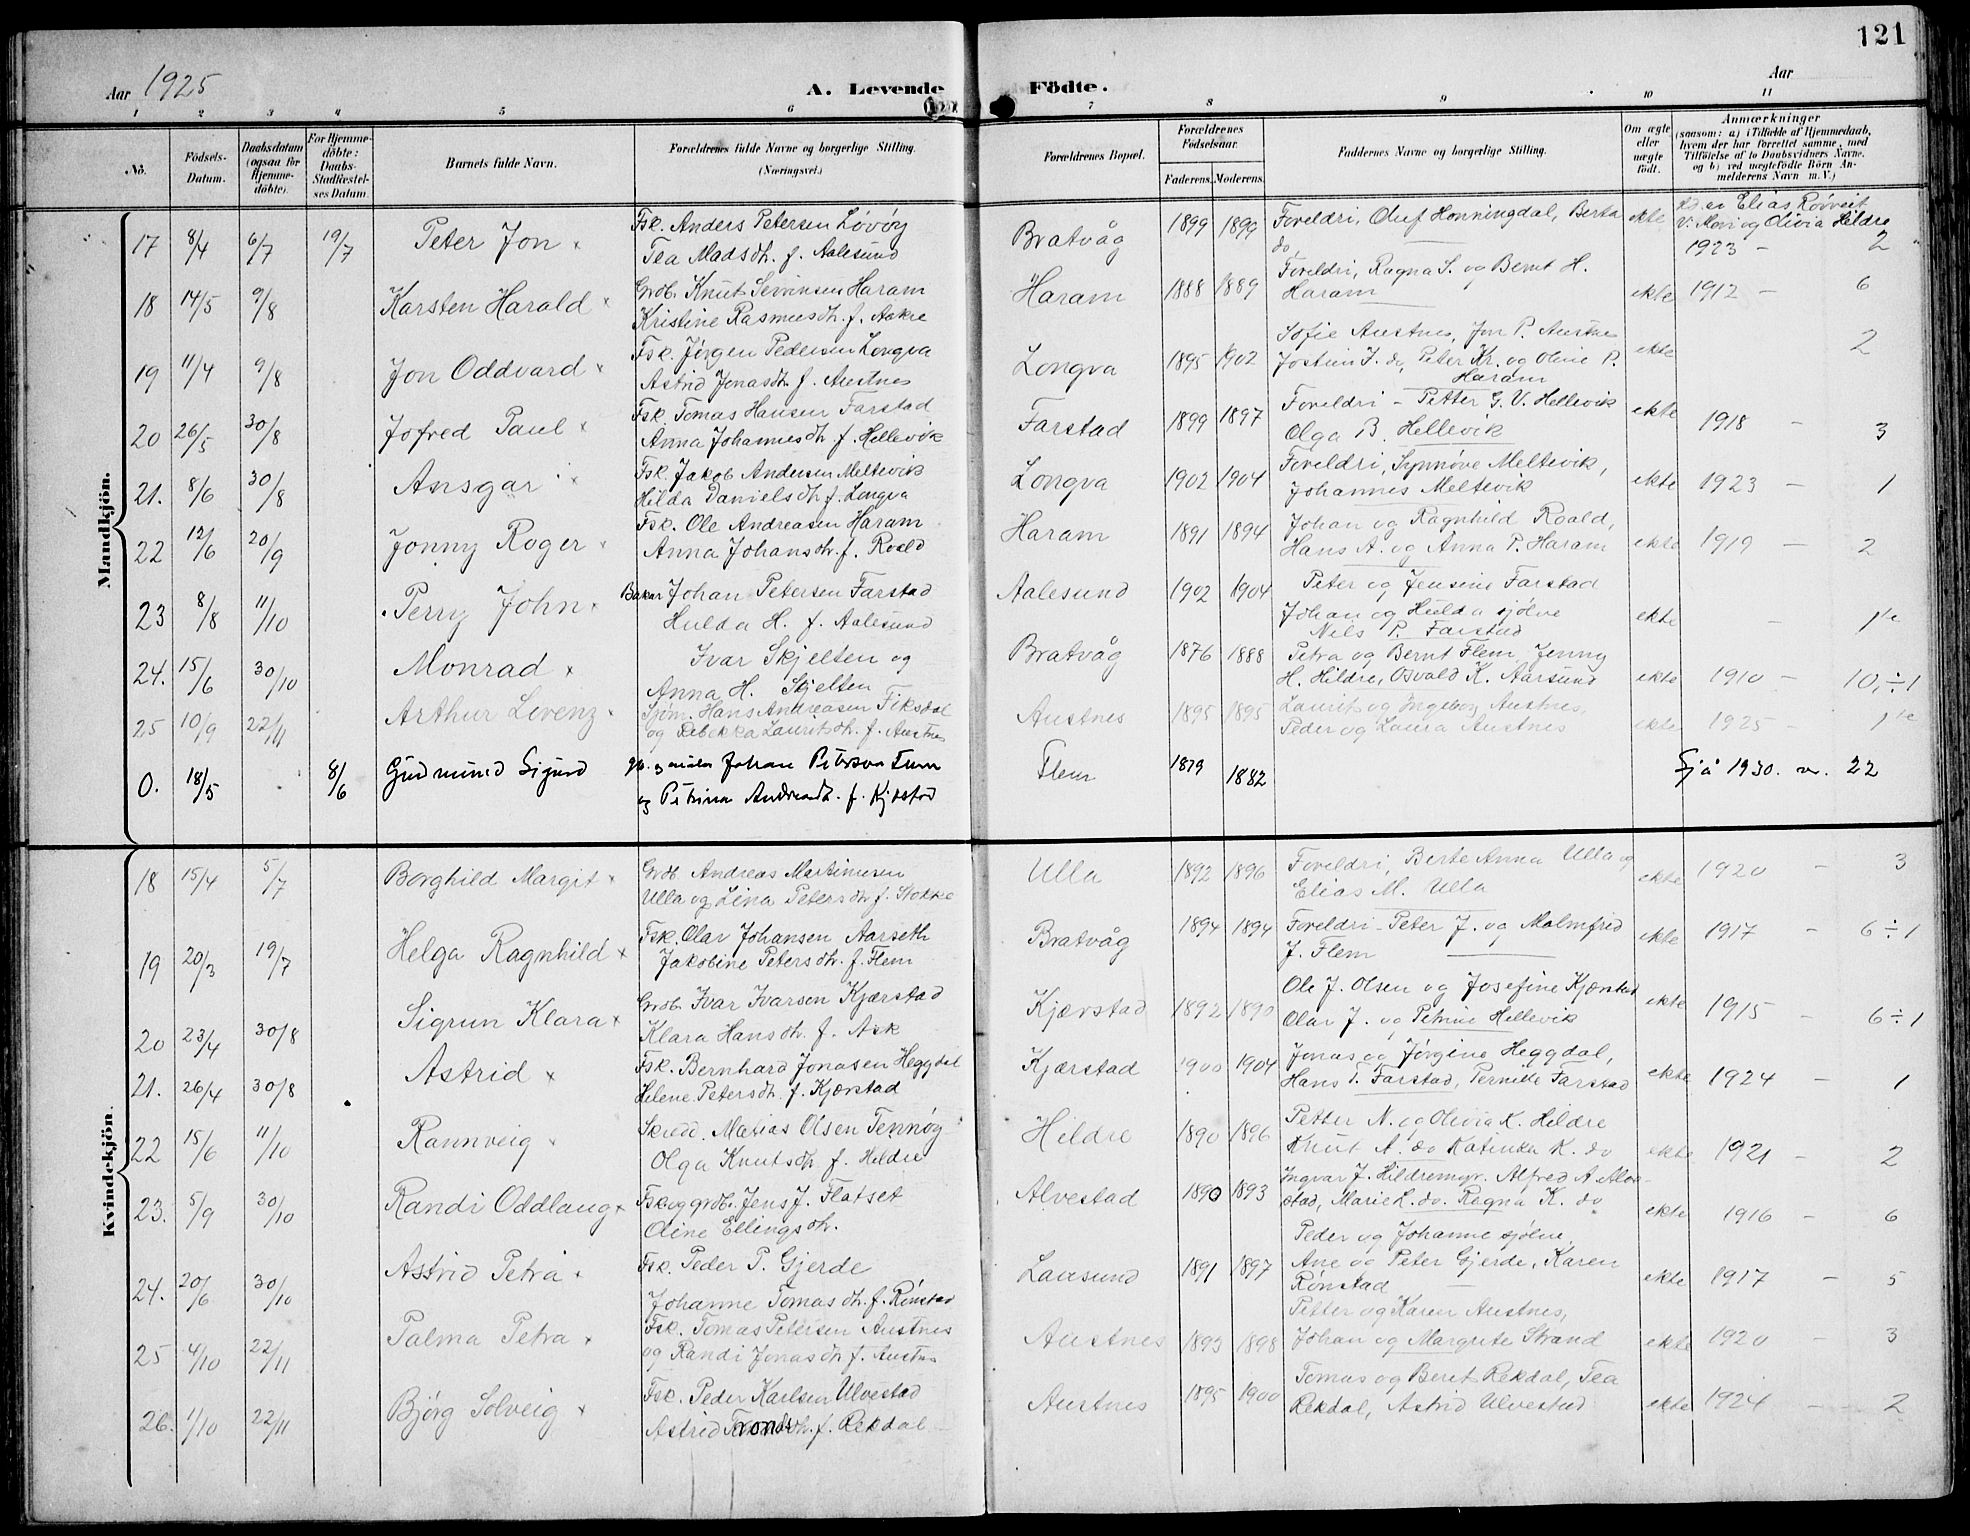 121
Aar 1925
A. Levende
Födte.
Aar
1 2 3 4 5 6 7 8 9 10 11
No.
Födsels-
Datum.
Daabsdatum
(ogsaa for
Hjemme-
döbte).
For Hjemme-
döbte:
Daabs-
Stadfæstel-
ses Datum.
Barnets fulde Navn.
Forældrenes fulde Navne og borgerlige Stilling.
(Næringsvei.)
Forældrenes Bopæl.
Forældrenes
Födselsaar.
Faderens. Moderens.
Faddernes Navne og borgerlige Stilling.
Om ægte
eller
uægte
født.
Anmærkninger
(saasom: a) i Tilfælde af Hjemmedaab,
hvem der har forrettet samme, med
Tilföielse af to Daabsvidners Navne.
og b) ved uægtefödte Börn An-
melderens Navn m. V.)
Mandkjön.
17 8/4 6/7 19/7 Peter Jon
Fsk. Anders Petersen Løvøy
Tea Madsdtr. f. Aalesund
Bratvåg 1899 1899
Foreldri, Oluf Honningdal, Berta
do
ekte
Elias Røsvik
V. Mari og Olivia Hildre
1923 - 2
18 14/5 9/8 Karsten Harald
Grdb. Knut Sevrinsen Haram
Kristine Rasmusdtr. f. Aakre
Haram 1888 1889
Foreldri, Ragna S. og Bernt H.
Haram
ekte 1912 - 6
19 11/4 9/8 Jon Oddvard
Fsk. Jørgen Pedersen Longva
Astrid Jonasdtr. f. Austnes
Longva 1895 1902
Sofie Austnes, Jon P. Austnes
Jostein J. do, Peter Kr. og Oline P.
Haram
ekte 2
20 26/5 30/8 Jofred Paul
Fsk. Tomas Hansen Farstad
Anna Johannesdtr. f. Hellevik
Farstad 1899 1897
Foreldri - Petter G. V. Hellevik
Olga B. Hellevik
ekte 1918 - 3
21. 8/6 30/8 Ansgar
Fsk. Jakob Andersen Meltevik
Hilda Danielsdtr. f. Longva
Longva 1902 1904
Foreldri, Synnøve Meltevik,
Johannes Meltevik
ekte 1923 - 1
22 12/6 20/9 Jonny Roger
Fsk. Ole Andreasen Haram
Anna Johansdtr. f. Roald
Haram 1891 1894
Johan og Ragnhild Roald,
Hans A. og Anna P. Haram
ekte 1919 - 2
23 8/8 11/10 Perry John
Bakar Johan Petersen Farstad
Hulda H. f. Aalesund
Aalesund 1902 1904
Peter og Jensine Farstad
Johan og Hulda sjølve
Nils P. Farstad
ekte - 1te
24. 15/6 30/10 Monrad
Ivar Skjelten og
Anna H. Skjelten
Bratvåg 1876 1888
Petra og Bernt Flem Jenny
H. Hildre, Osvald K. Aarsund
ekte 1910 - 10,÷1
25 10/9 22/11 Arthur Levenz
Sjøm. Hans Andreasen Fiksdal
og Rebekka Lauritsdtr. f. Austnes
Austnes 1895 1895
Laurits og Ingeborg Austnes,
Peder og Laura Austnes
ekte 1925 1te
0. 18/5 8/6 Gudmund Sigurd
Johan Peterson Flem
og Petrina Andreasdtr. f. Kjerstad
Flem 1879 1882
Sjå 1930. nr. 22
Kvindekjön.
18 15/4 5/7 Borghild Margit
Grdb. Andreas Martinusen
Ulla og Lina Petersdtr f. Stokke
Ulla 1892 1896
Foreldri, Berte Anna Ulla og
Elias M. Ulla
ekte 1920 - 3
19 20/3 19/7 Helga Ragnhild
Fsk. Olav Johansen Aarseth
Jakobine Petersdtr. f. Flem
Bratvåg 1894 1894
Foreldri - Peter J. og Malmfrid
J. Flem
ekte 1917 - 6÷1
20 23/4 30/8 Sigrun Klara
Grdb. Ivar Ivarsen Kjærstad
Klara Hansdtr. f. Ask
Kjærstad 1892 1890
Ole J. Olsen og Josefine Kjærstad
Olav J. og Petrine Hellevik
ekte 1915 - 6÷1
21. 26/4 30/8 Astrid
Fsk. Bernhard Jonasen Heggdal
Helene Petersdtr. f. Kjærstad
Kjærstad 1900 1904
Jonas og Jørgine Heggdal,
Hans T. Farstad, Pernille Farstad
ekte 1924 - 1
22 15/6 11/10 Rannveig
Skredd. Matias Olsen Tennøy
Olga Knutsdtr f. Hildre
Hildre 1890 1896
Petter N. og Olivia K. Hildre
Knut A. do Katinka K. do
ekte 1921 - 2
23. 5/9 30/10 Randi Oddlaug
Fsk og grdb. Jens J. Flatset
Oline Ellingsdtr.
Alvestad 1890 1893
Ingvar J. Hildremyr. Alfred A Alve-
stad, Marie L. do. Ragna K. do
ekte 1916 - 6
24. 20/6 30/10 Astrid Petra
Fsk. Peder P. Gjerde
Johanne Tomasdtr. f. Rønstad
Lausund 1891 1897
Peder og Johanne sjølve,
Ane og Peter Gjerde, Karen
Rønstad
ekte 1917 - 5
25 4/10 22/11 Palma Petra
Fsk. Tomas Petersen Austnes
og Randi Jonasdtr f. Austnes
Austnes 1893 1898
Petter og Karen Austnes,
Johan og Margrete Strand
ekte 1920 - 3
26. 1/10 22/11 Bjørg Solveig
Fsk. Peder Karlsen Ulvestad
Astrid Tronsdtr. f. Rekdal
Austnes 1895 1900
Tomas og Beret Rekdal, Tea
Rekdal, Astrid Ulvestad
ekte 1924 - 2